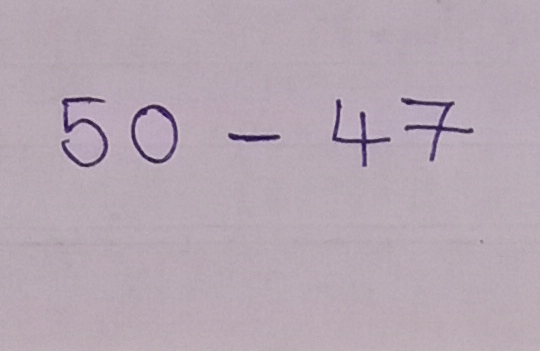 50 - 47